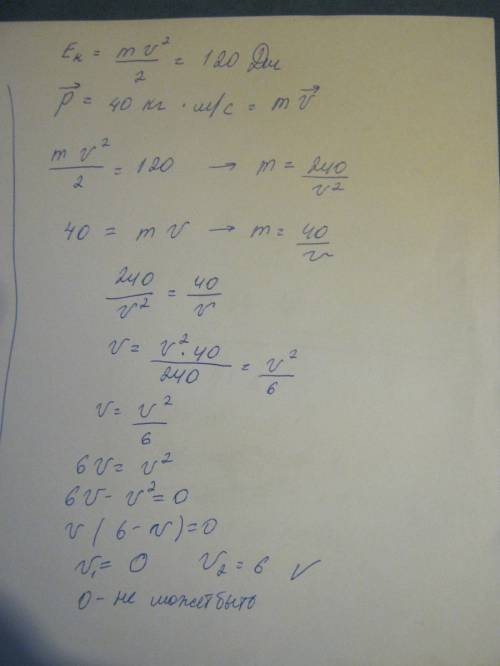 Eк = mv²/2 = 120 Дж
p⃗ = 40 кг · м/с = mv⃗
mv²/2 = 120 → m = 240/v²
40 = mv → m = 40/v
240/v² = 40/v
v = v²·40/240 = v²/6
v = v²/6
6v = v²
6v - v² = 0
v(6 - v) = 0
v₁ = 0 v₂ = 6 √
0 - не может быть